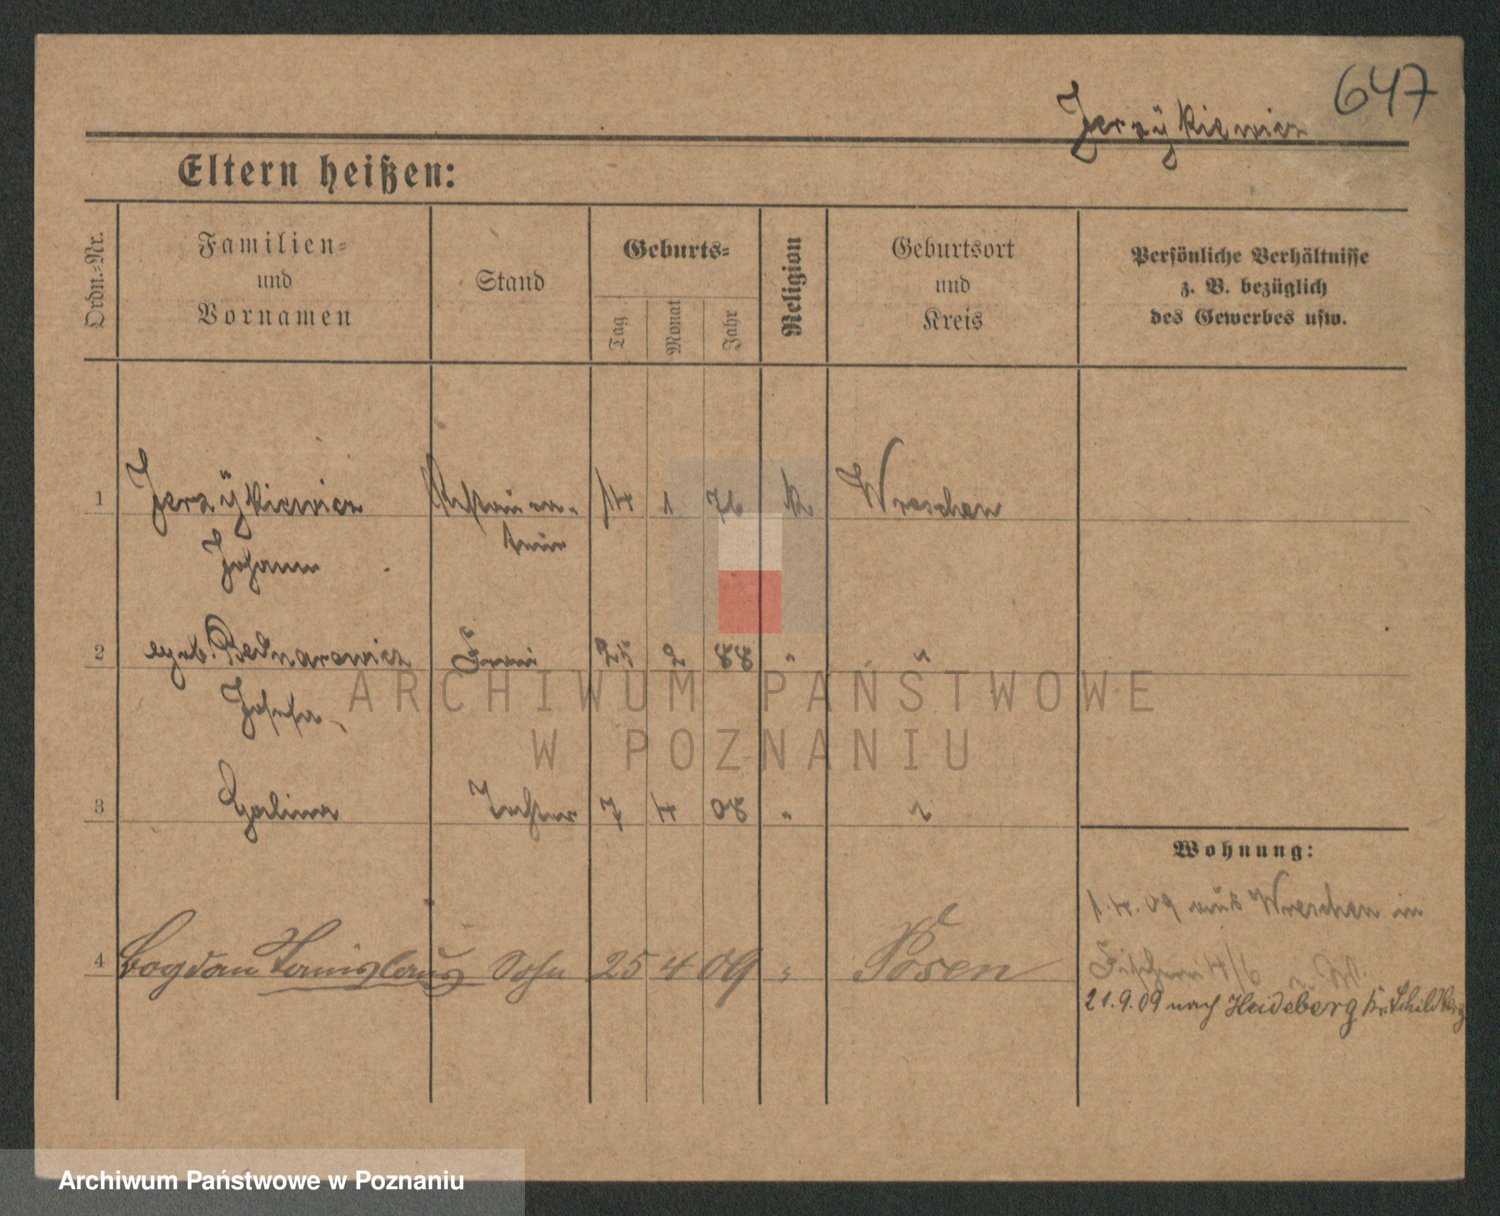 647
Jerzÿkiewicz
Eltern heißen:
Ordn.-Nr.
Familien-
und
Vornamen
Stand
Geburts-
Tag
Monat
Jahr
Religion
Geburtsort
und
Kreis
Persönliche Verhältnisse
z. B. bezüglich
des Gewerbes usw.
1 Jerzÿkiewicz Restaura- 14 1 76 k Wreschen
Johann teur
2 geb. Bednarowicz Frau 25 2 88 " "
Josefa
3 Halina Tochter 7 4 08 " "
Wohnung:
1.4.09 aus Wreschen in
4 Bogdan Stanislaus Sohn 25 4 09 " Posen
4/6
21.9.09 nach Heideberg Kr. Schildberg
ARCHIWUM PAŃSTWOWE
W POZNANIU
Archiwum Państwowe w Poznaniu